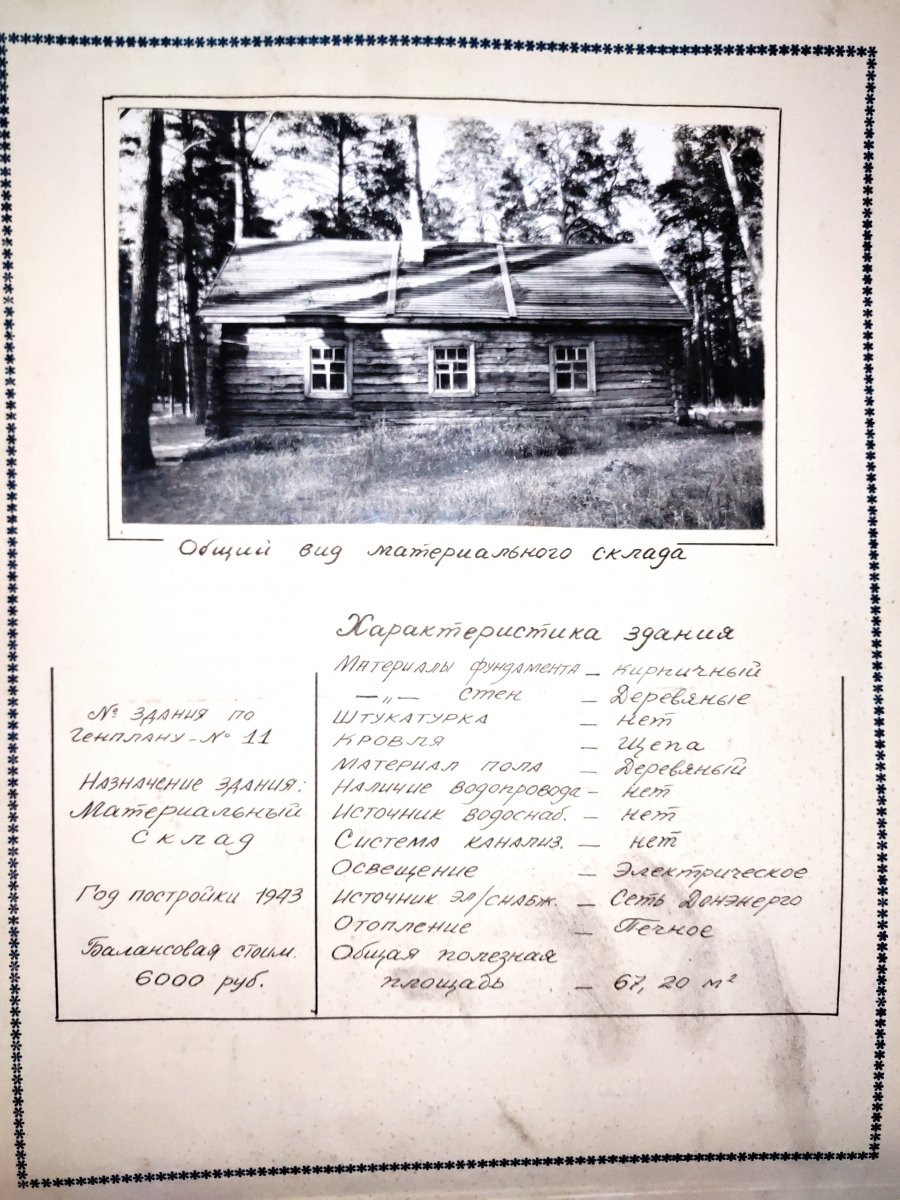 Общий вид материального склада
Характеристика здания
№ здания по
генплану – № 11
Назначение здания:
Материальный
склад
Год постройки 1943
Балансовая стоим.
6000 руб.
Материалы фундамента – Кирпичный
— „ — стен – Деревяные
Штукатурка – нет
Кровля – Щепа
Материал пола – Деревяный
Наличие водопровода – нет
Источник водоснаб. – нет
Система канализ. – нет
Освещение – Электрическое
Источник эл/снабж. – Сеть Донэнерго
Отопление – Печное
Общая полезная
площадь – 67,20 м²